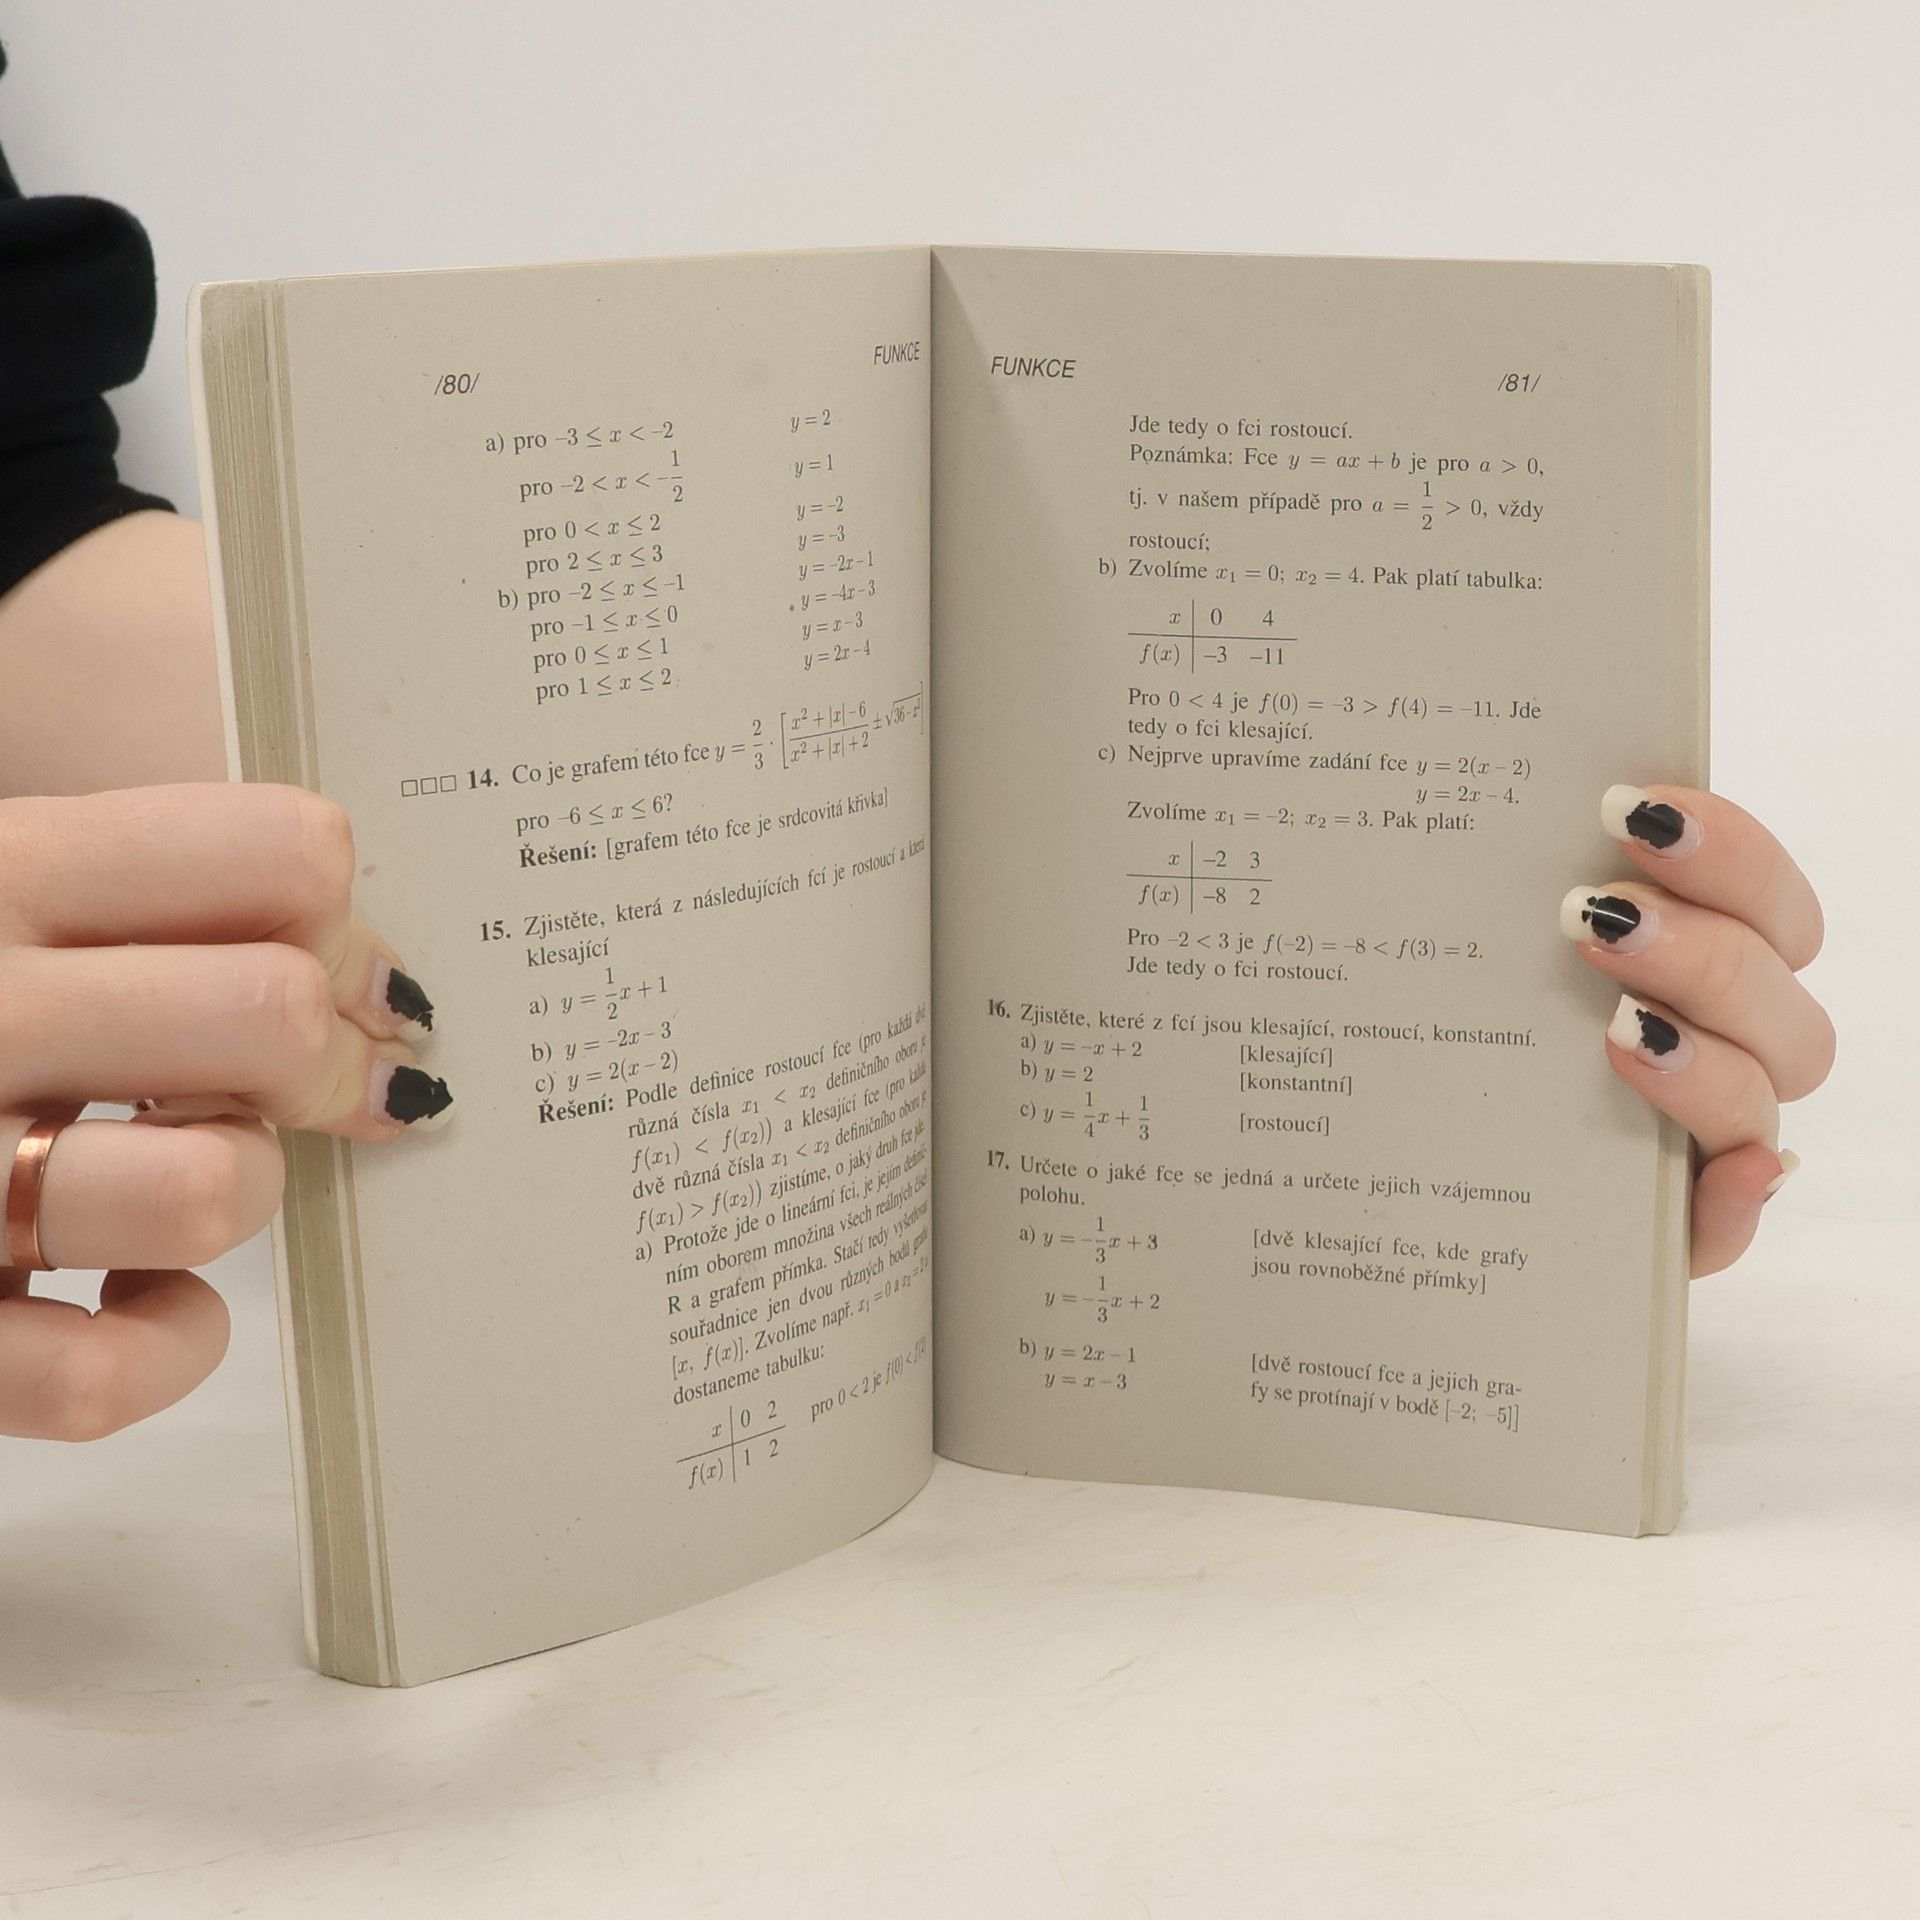 /80/ FUNKCE
a) pro –3 ≤ x < –2 y = 2
pro –2 < x < –1/2 y = 1
pro 0 < x ≤ 2 y = –2
pro 2 ≤ x ≤ 3 y = –3
b) pro –2 ≤ x ≤ –1 y = –2x – 1
pro –1 ≤ x ≤ 0 y = –4x – 3
pro 0 ≤ x ≤ 1 y = x – 3
pro 1 ≤ x ≤ 2 y = 2x – 4
□□□ 14. Co je grafem této fce y = 2/3 · [(x² + |x| – 6)/(x² + |x| + 2) ± √(36 – x²)]
pro –6 ≤ x ≤ 6?
Řešení: [grafem této fce je srdcovitá křivka]
15. Zjistěte, která z následujících fcí je rostoucí a která
klesající
a) y = 1/2 x + 1
b) y = –2x – 3
c) y = 2(x – 2)
Řešení: Podle definice rostoucí fce (pro každá dvě
různá čísla x₁ < x₂ definičního oboru je
f(x₁) < f(x₂)) a klesající fce (pro každá
dvě různá čísla x₁ < x₂ definičního oboru je
f(x₁) > f(x₂)) zjistíme, o jaký druh fce jde.
a) Protože jde o lineární fci, je jejím definič-
ním oborem množina všech reálných čísel
R a grafem přímka. Stačí tedy vyšetřovat
souřadnice jen dvou různých bodů grafu
[x, f(x)]. Zvolíme např. x₁ = 0 a x₂ = 2 a
dostaneme tabulku:
x | 0 2 pro 0 < 2 je f(0) < f(2)
f(x) | 1 2
FUNKCE /81/
Jde tedy o fci rostoucí.
Poznámka: Fce y = ax + b je pro a > 0,
tj. v našem případě pro a = 1/2 > 0, vždy
rostoucí;
b) Zvolíme x₁ = 0; x₂ = 4. Pak platí tabulka:
x | 0 4
f(x) | –3 –11
Pro 0 < 4 je f(0) = –3 > f(4) = –11. Jde
tedy o fci klesající.
c) Nejprve upravíme zadání fce y = 2(x – 2)
y = 2x – 4.
Zvolíme x₁ = –2; x₂ = 3. Pak platí:
x | –2 3
f(x) | –8 2
Pro –2 < 3 je f(–2) = –8 < f(3) = 2.
Jde tedy o fci rostoucí.
16. Zjistěte, které z fcí jsou klesající, rostoucí, konstantní.
a) y = –x + 2 [klesající]
b) y = 2 [konstantní]
c) y = 1/4 x + 1/3 [rostoucí]
17. Určete o jaké fce se jedná a určete jejich vzájemnou
polohu.
a) y = –1/3 x + 3 [dvě klesající fce, kde grafy
jsou rovnoběžné přímky]
y = –1/3 x + 2
b) y = 2x – 1 [dvě rostoucí fce a jejich gra-
y = x – 3 fy se protínají v bodě [–2; –5]]